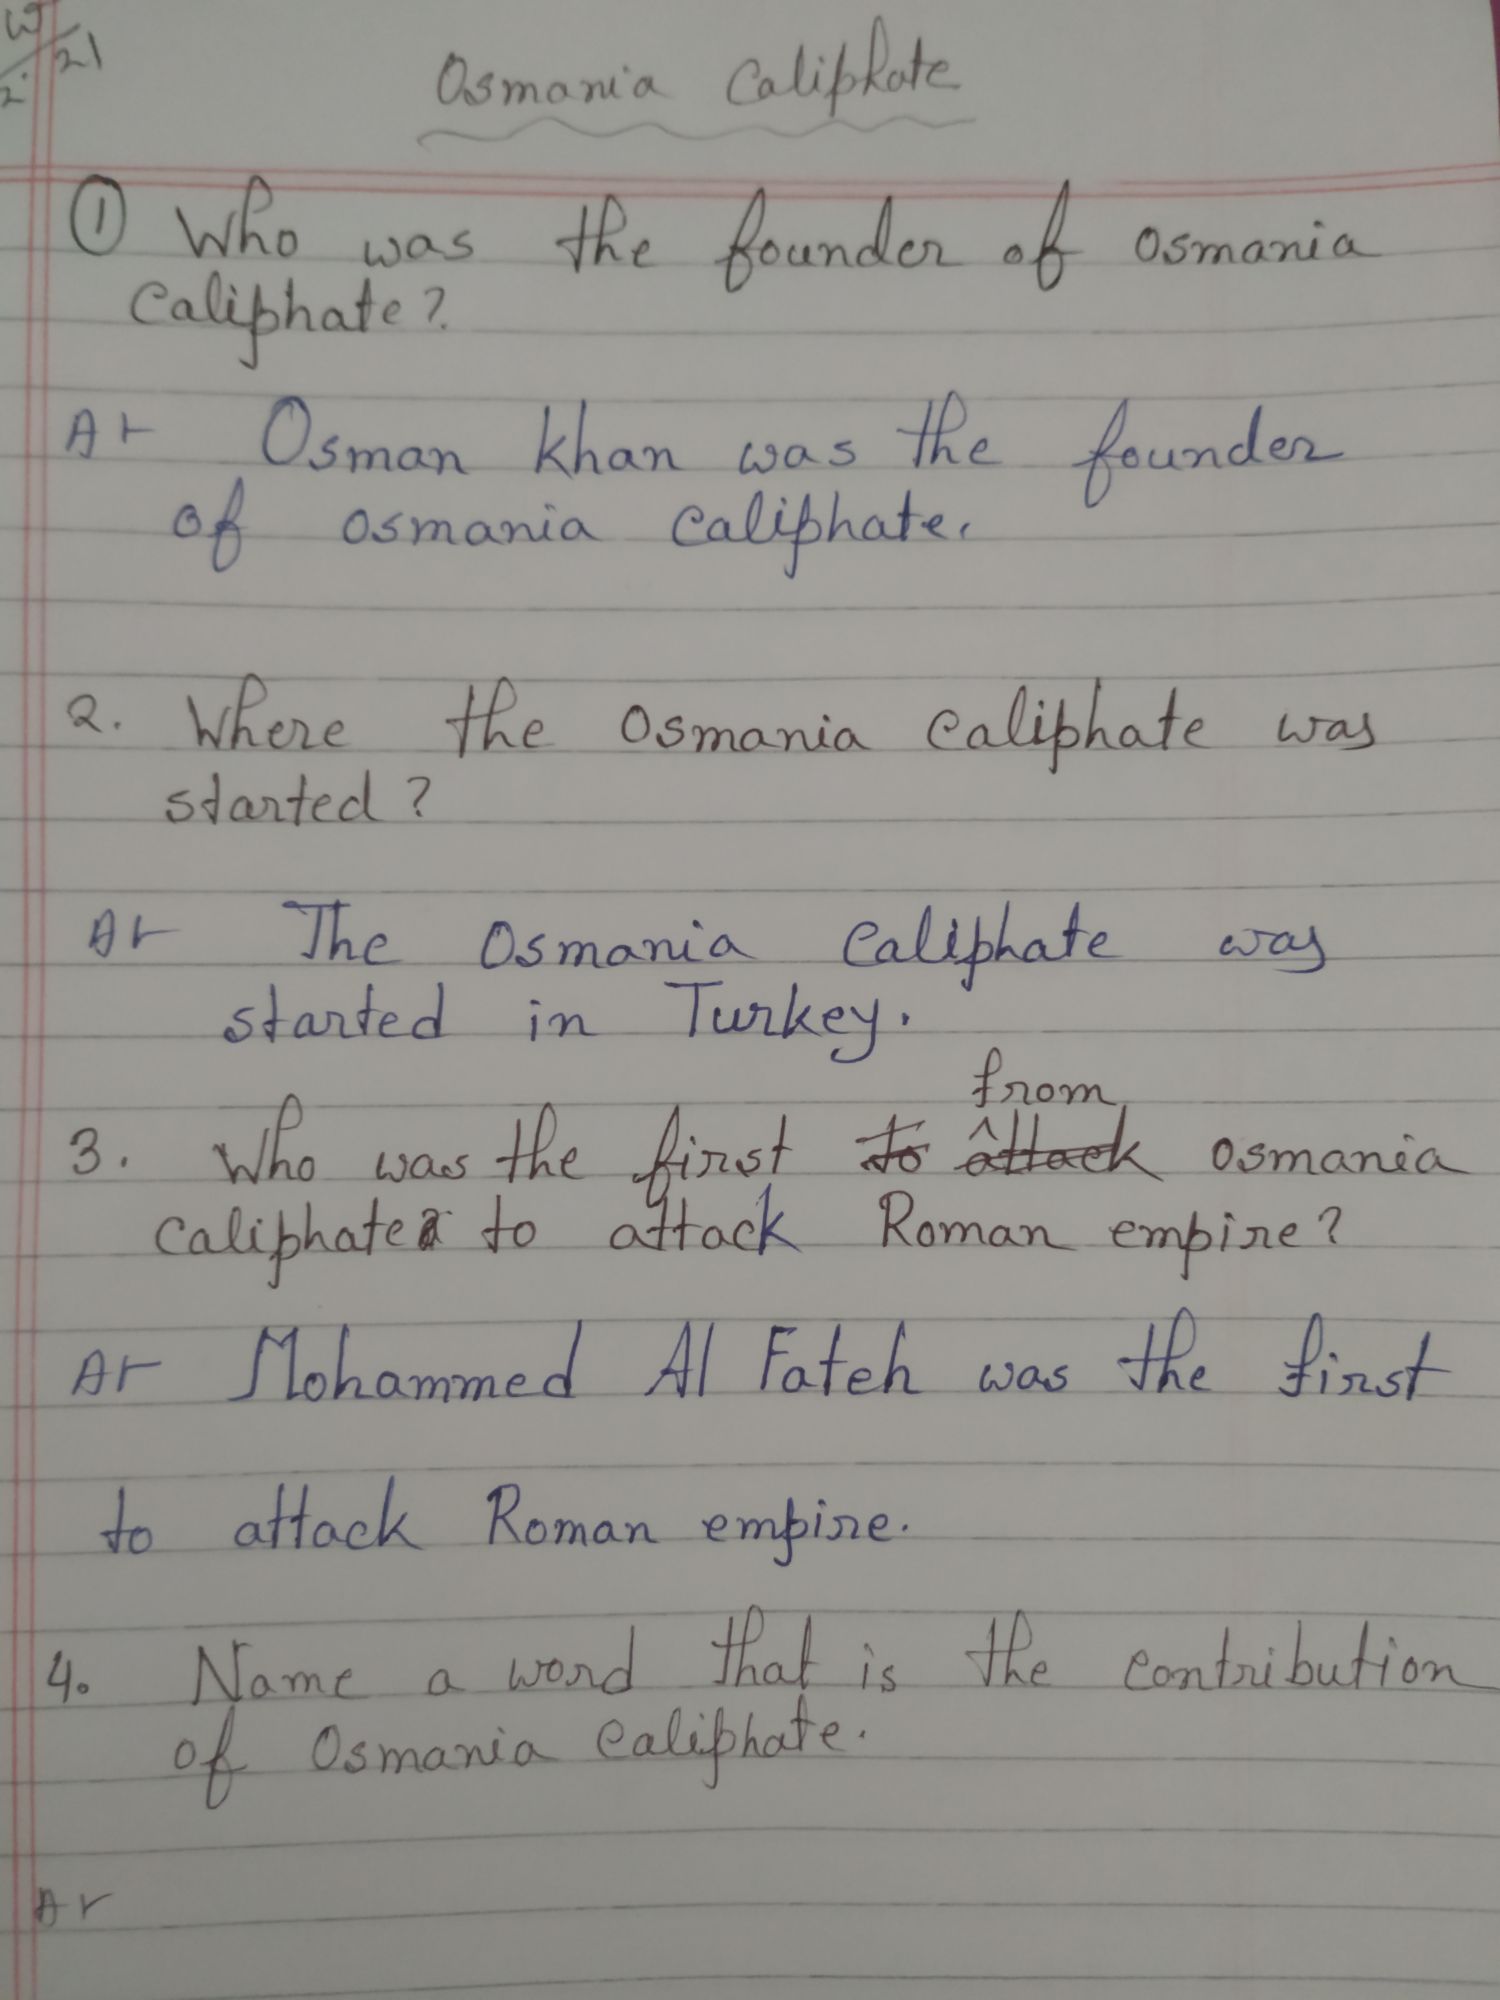 Osmania Caliphate
① Who was the founder of Osmania
Caliphate?
A⊢ Osman Khan was the founder
of Osmania Caliphate.
2. Where the Osmania Caliphate was
started?
A⊢ The Osmania Caliphate was
started in Turkey.
from
3. Who was the first to attack Osmania
Caliphate to attack Roman empire?
A⊢ Mohammed Al Fateh was the first
to attack Roman empire.
4. Name a word that is the contribution
of Osmania Caliphate.
A⊢